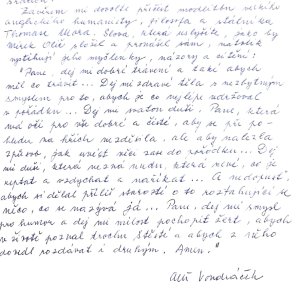 Závěrem mi dovolte přečíst modlitbu
anglického humanisty, filosofa a státníka
Thomase Mora. Slova, která uslyšíte, jako by
Mirek složil a pronášel sám, natolik
vystihují jeho myšlenky, názory a cítění:
"Pane, dej mi dobré trávení a také abych
měl co trávit... Dej mi zdraví těla s nezbytným
smyslem pro to, abych je co nejlépe udržoval
v pořádku... Dej mi svatou duši, Pane, která
má oči pro vše dobré a čisté, aby se při po-
hledu na hřích neděsila, ale aby nalezla
způsob, jak uvést věci zas do pořádku... Dej
mi duši, která nezná nudu, která neví, co je
reptat a vzdychat a naříkat... A nedopusť,
abych si dělal příliš starostí o to roztahující se
něco, co se nazývá já... Pane, dej mi smysl
pro humor a dej mi milost pochopit žert, abych
v životě poznal trochu štěstí a abych z něho
dovedl rozdávat i druhým. Amen."
Vondráček